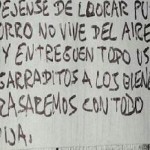 EJENSE DE LLORAR PU
ORRO NO VIVE DEL AIRE
Y ENTREGUEN TODO US
GARRADITOS A LOS BIENE
RASAREMOS CON TODO
IDA.